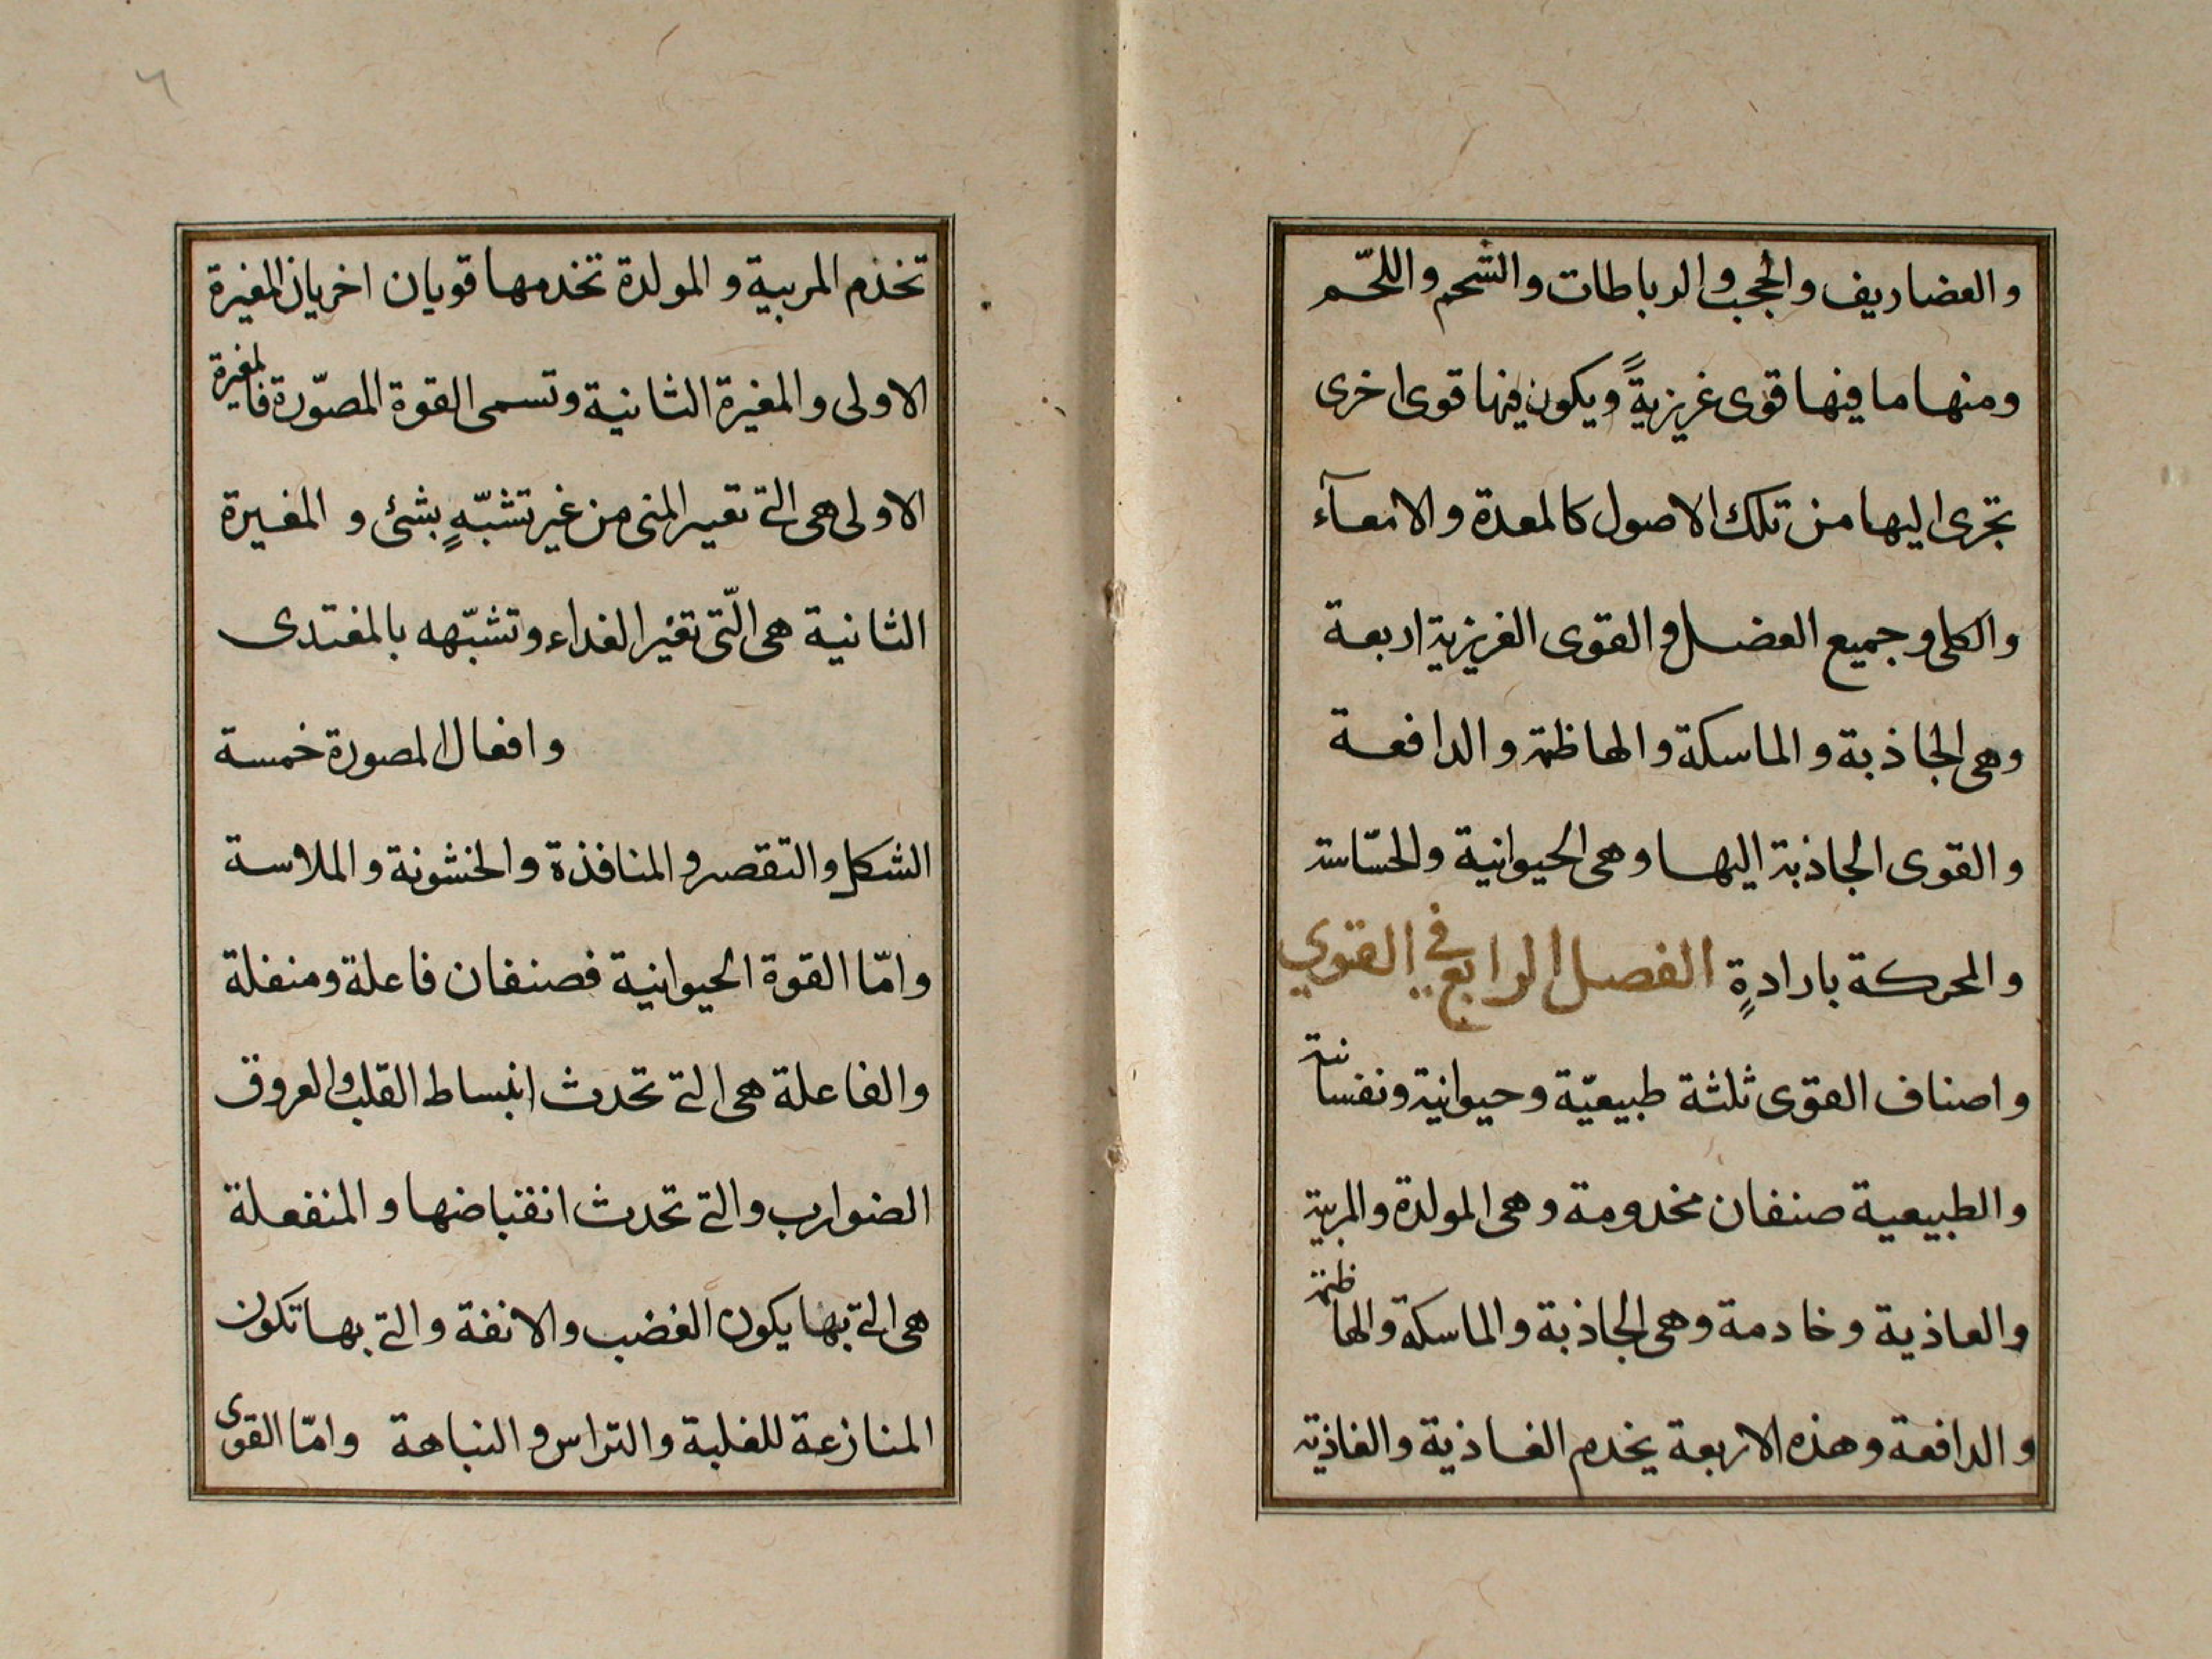 والعضاريف والحجب والرباطات والشحم واللحّم
ومنها ما فيها قوى غريزيةً ويكون فيها قوى اخرى
تجرى اليها من تلك الاصول كالمعدة والامعآء
والكلى وجميع العضل والقوى الغريزية اربعة
وهى الجاذبة والماسكة والهاظمة والدافعة
والقوى الجاذبة اليها وهى الحيوانية والحسّاسة
والمحركة بارادةٍ الفصل الرابع في القوي
واصناف القوى ثلثة طبيعيّة وحيوانية ونفسانية
والطبيعية صنفان مخدومة وهى المولدة والمربية
والعاذية وخادمة وهى الجاذبة والماسكة والهاظمة
والدافعة وهذه الاربعة يخدم الغاذية والغاذية
تخدم المربية والمولدة تخدمها قويان اخريان المغيرة
الاولى والمغيرة الثانية وتسمى القوة المصوّرة فالمغيرة
الاولى هى التى تغير المنى من غير تشبّهٍ بشئ و المغيرة
الثانية هى الّتى تغير الغداء وتشبّهه بالمغتدى
وافعال المصورة خمسة
الشكل والتقصر والمنافذة والخشونة والملاسة
وامّا القوة الحيوانية فصنفان فاعلة ومنفلة
والفاعلة هى التى تحدث انبساط القلب والعروق
الضوارب والتى تحدث انقباضها والمنفعلة
هى التى بها يكون الغضب والانفة والتى بها تكون
المنازعة للغلبة والتراس والنباهة وامّا القوى